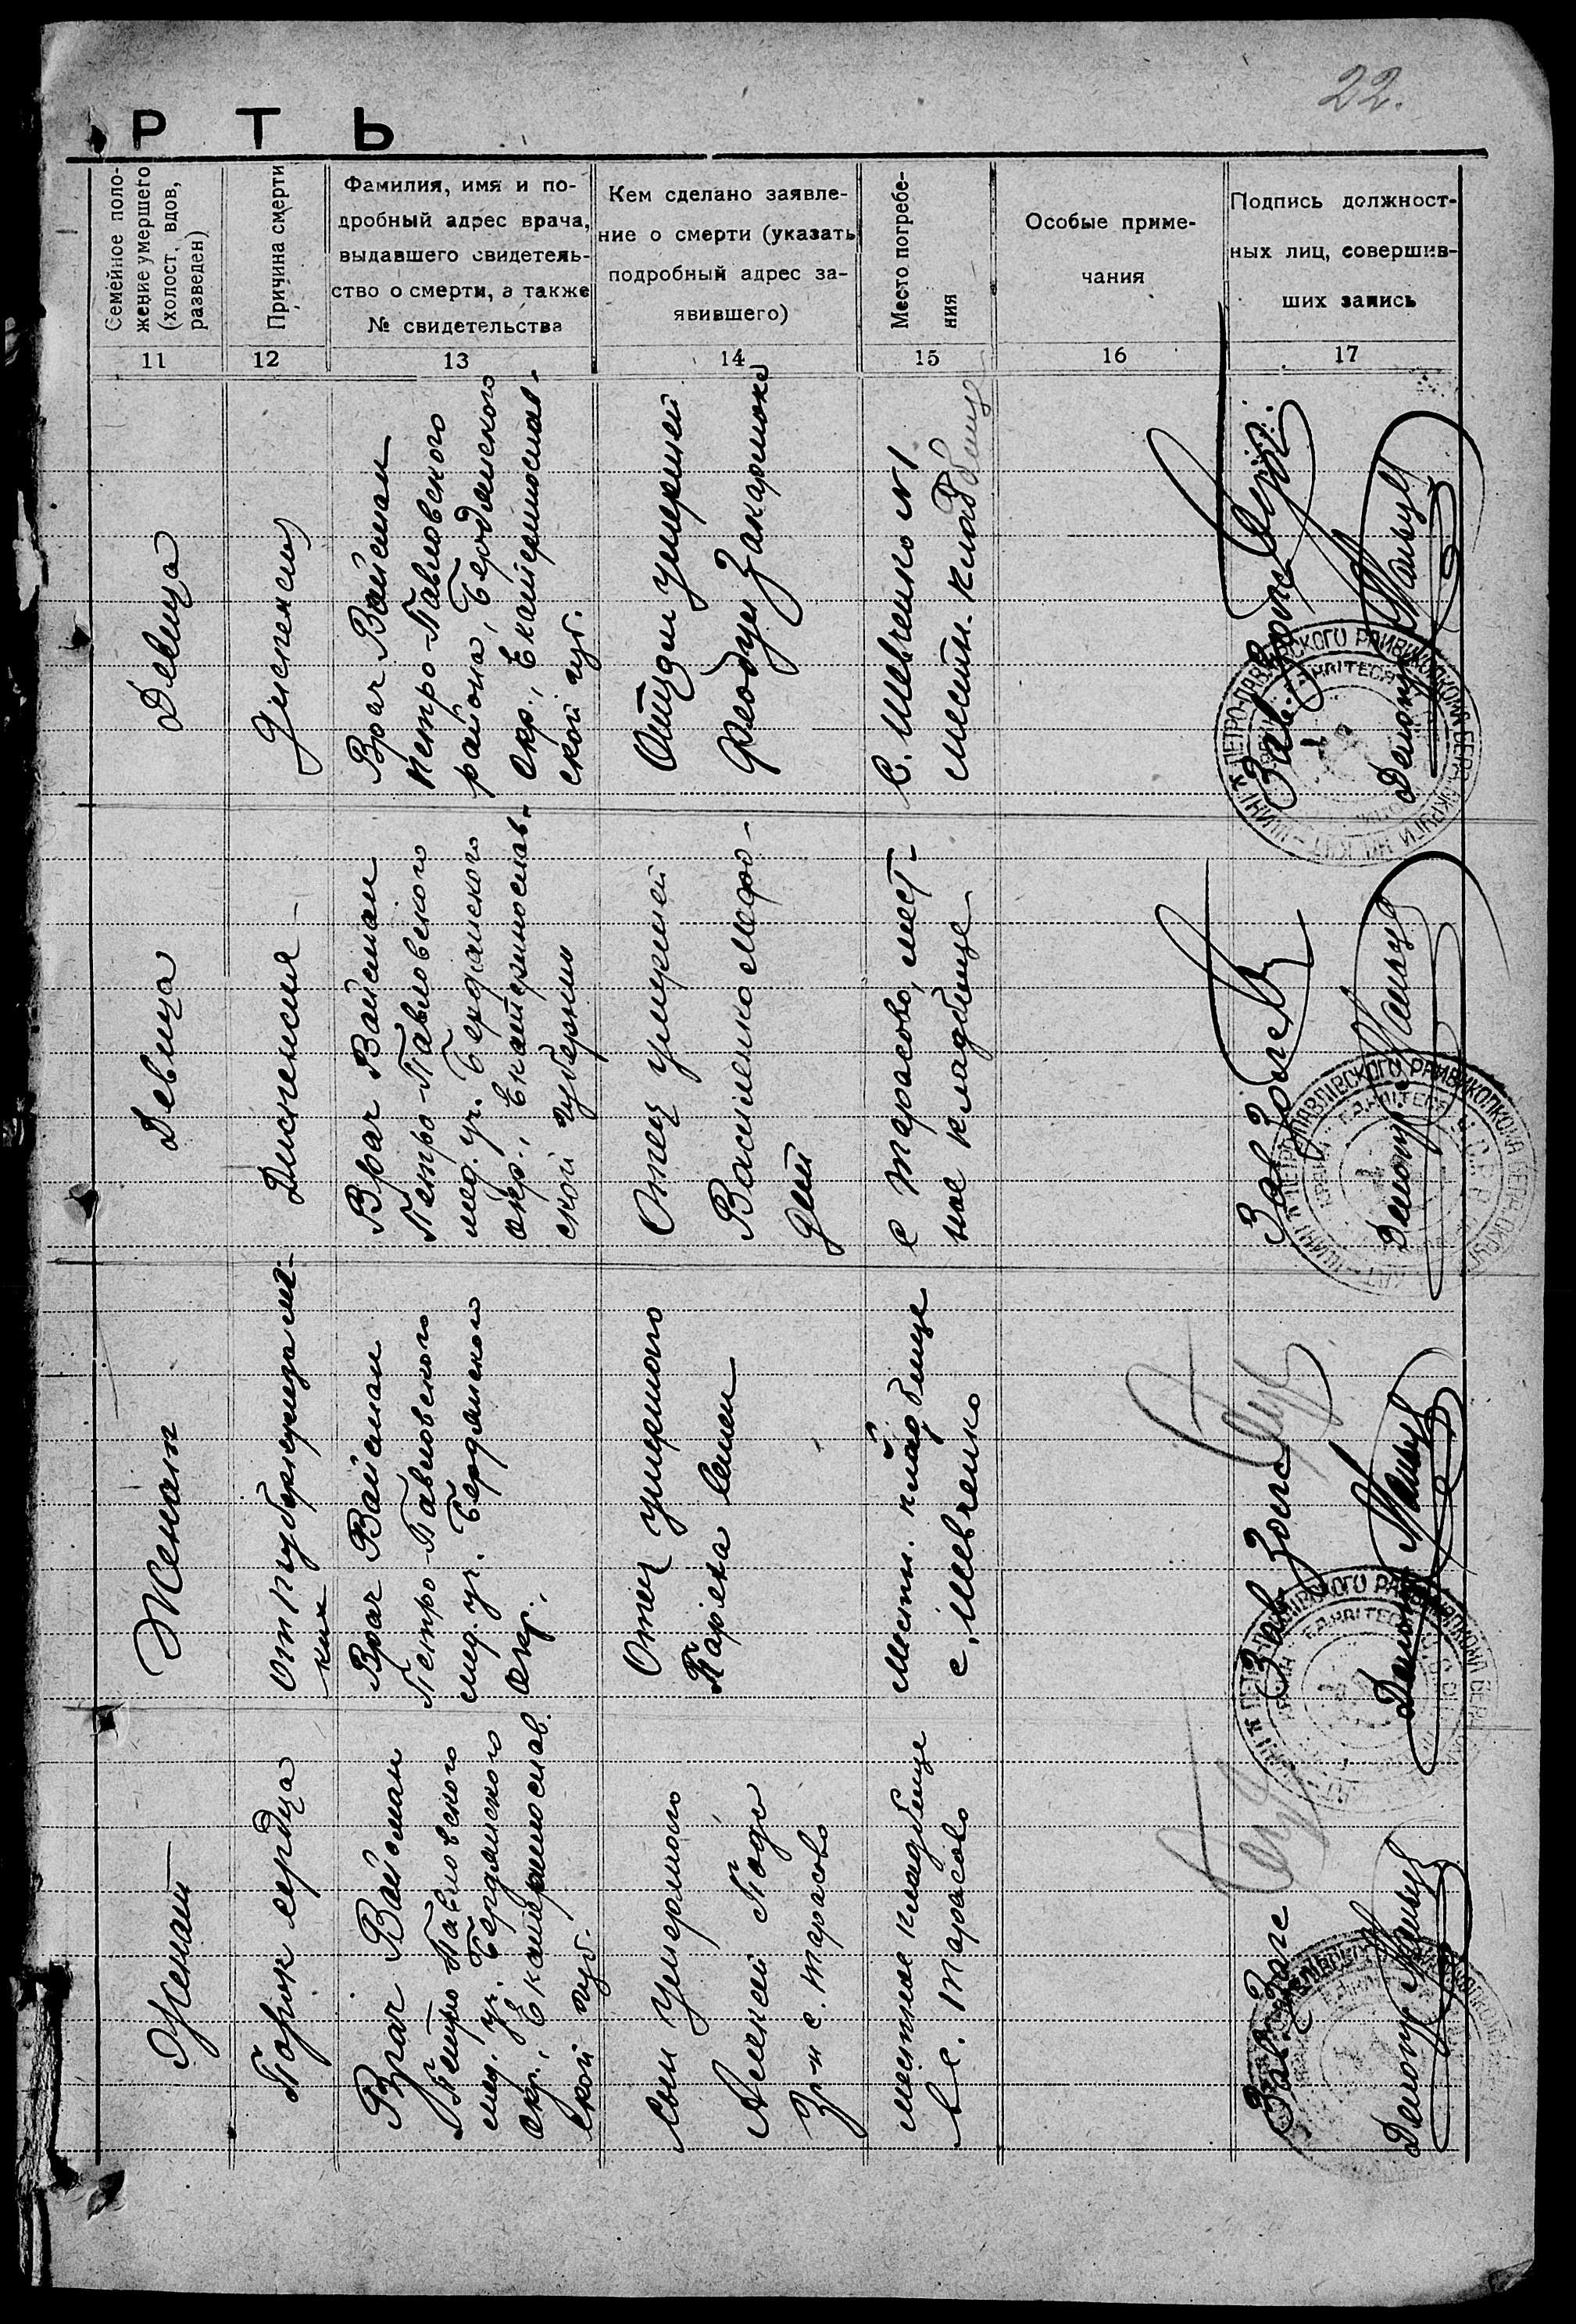 22.
РТЬ
Семейное поло-
жение умершего
(холост, вдов,
разведен)
Причина смерти
Фамилия, имя и по-
дробный адрес врача,
выдавшего свидетель-
ство о смерти, а также
№ свидетельства
Кем сделано заявле-
ние о смерти (указать
подробный адрес за-
явившего)
Место погребе-
ния
Особые приме-
чания
Подпись должност-
ных лиц, совершив-
ших запись
11
12
13
14
15
16
17
Девица
Врач Вайсман
Петро-Павловского
района, Бердянского
Окр., Екатеринослав-
ской губ.
Отцом умершей
Феодул Закарлюка
С. Шевченко N1
местн. кладбище
Зав. Загс
Делопр.
Девица
Диспепсия
Врач Вайсман
Петро-Павловского
мед. уч. Бердянского
окр., Екатеринослав-
ской губернии
Отец умершей
Василенко Мефо-
дий
с Тарасово, мест-
ное кладбище
Зав Загс
Делопр.
Женат
От туберкулеза лег-
ких
Врач Вайсман
Петро-Павловского
мед. уч. Бердянского
окр.,
Отец умершего
Семен
Местн. кладбище
с. Шевченко
Зав Загс
Делопр.
Женат
Порок сердца
Врач Вайсман
Петро-Павловского
мед. уч. Бердянского
окр., Екатеринослав.
ской губ.
Сын умершего
Алексей
Гр-н с. Тарасово
местное кладбище
в с. Тарасово
Зав. Загс
Делопр.